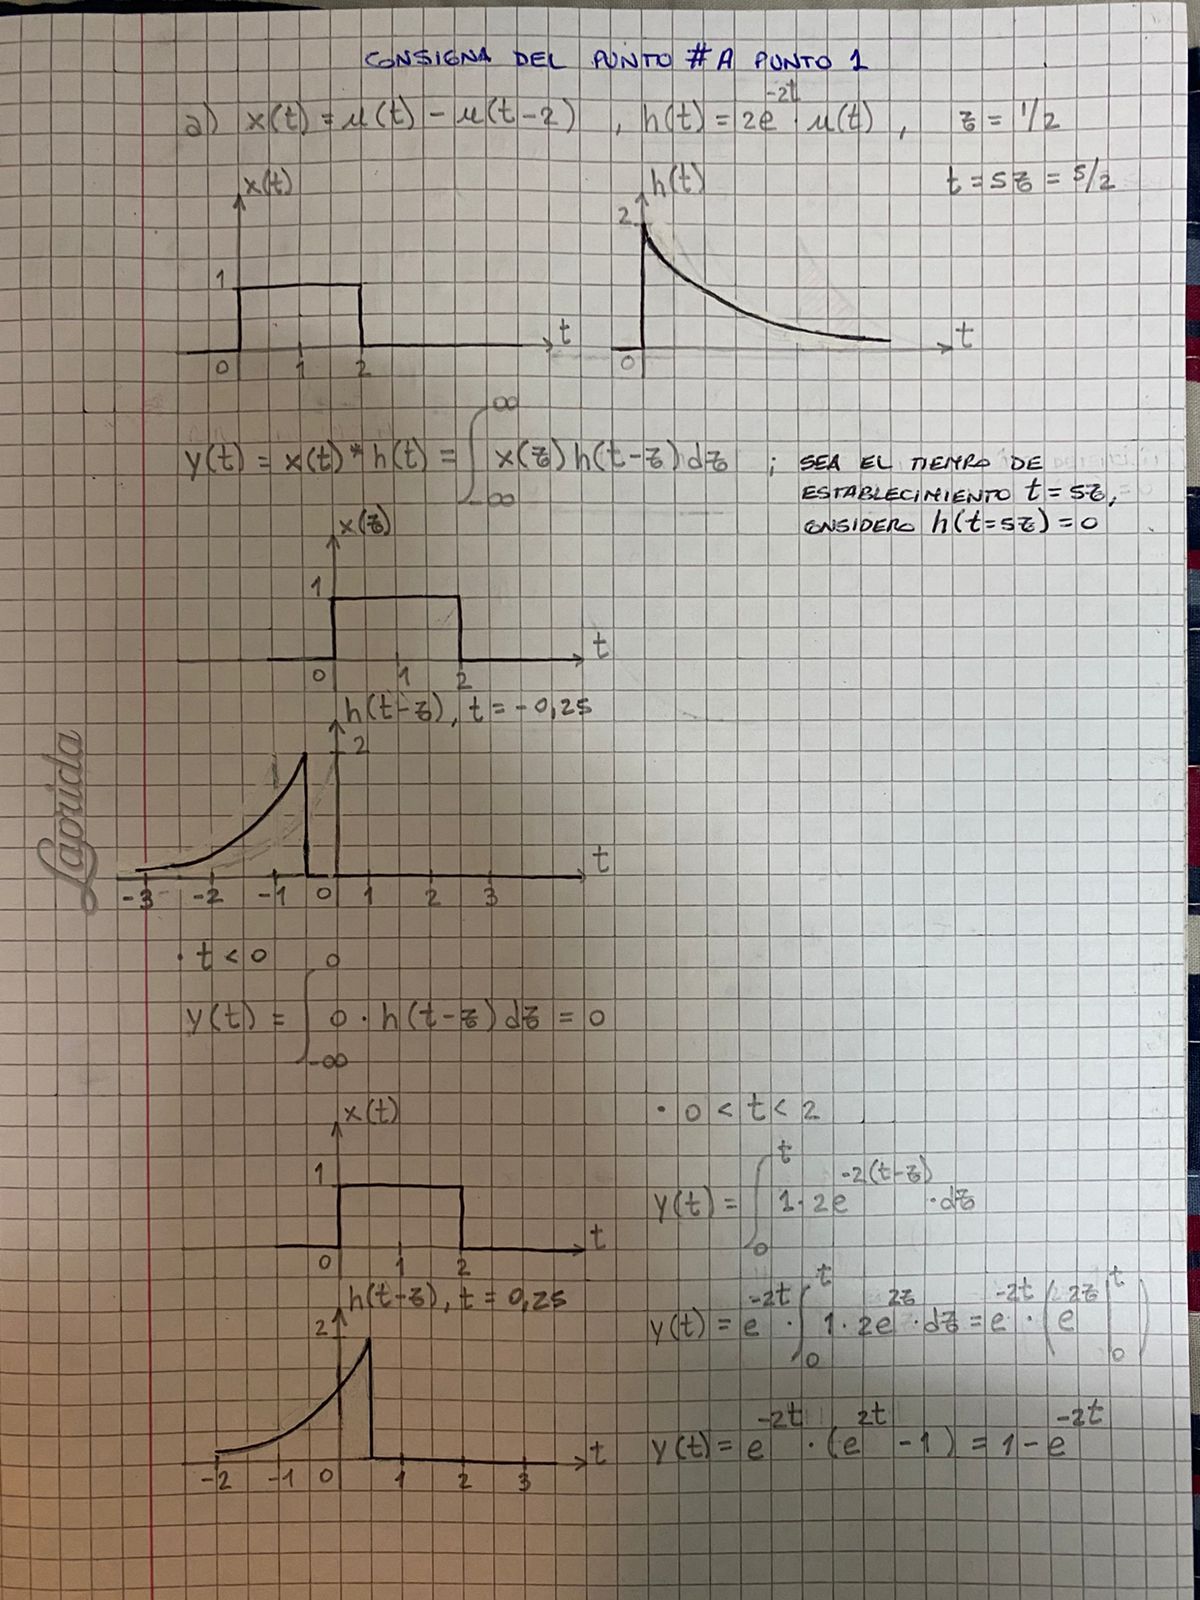 CONSIGNA DEL PUNTO # A PUNTO 1
a) x(t) = μ(t) - μ(t-2) , h(t) = 2e^{-2t} · μ(t) , z = 1/2
t = 5z = 5/2
x(t)
1
0 1 2 t
h(t)
2
0 t
y(t) = x(t) * h(t) = ∫_{-∞}^{∞} x(z) h(t-z) dz ; SEA EL TIEMPO DE
ESTABLECIMIENTO t = 5z,
CONSIDERO h(t=5z) = 0
x(z)
1
0 1 2 t
h(t-z), t = -0,25
2
-3 -2 -1 0 1 2 3 t
Laprida
· t < 0
y(t) = ∫_{-∞}^{0} 0 · h(t-z) dz = 0
x(t)
1
0 1 2 t
h(t-z), t = 0,25
2
-2 -1 0 1 2 3 t
· 0 < t < 2
y(t) = ∫_{0}^{t} 1 · 2e^{-2(t-z)} · dz
y(t) = e^{-2t} · ∫_{0}^{t} 1 · 2e^{2z} · dz = e^{-2t} · (e^{2z} |_{0}^{t})
y(t) = e^{-2t} · (e^{2t} - 1) = 1 - e^{-2t}